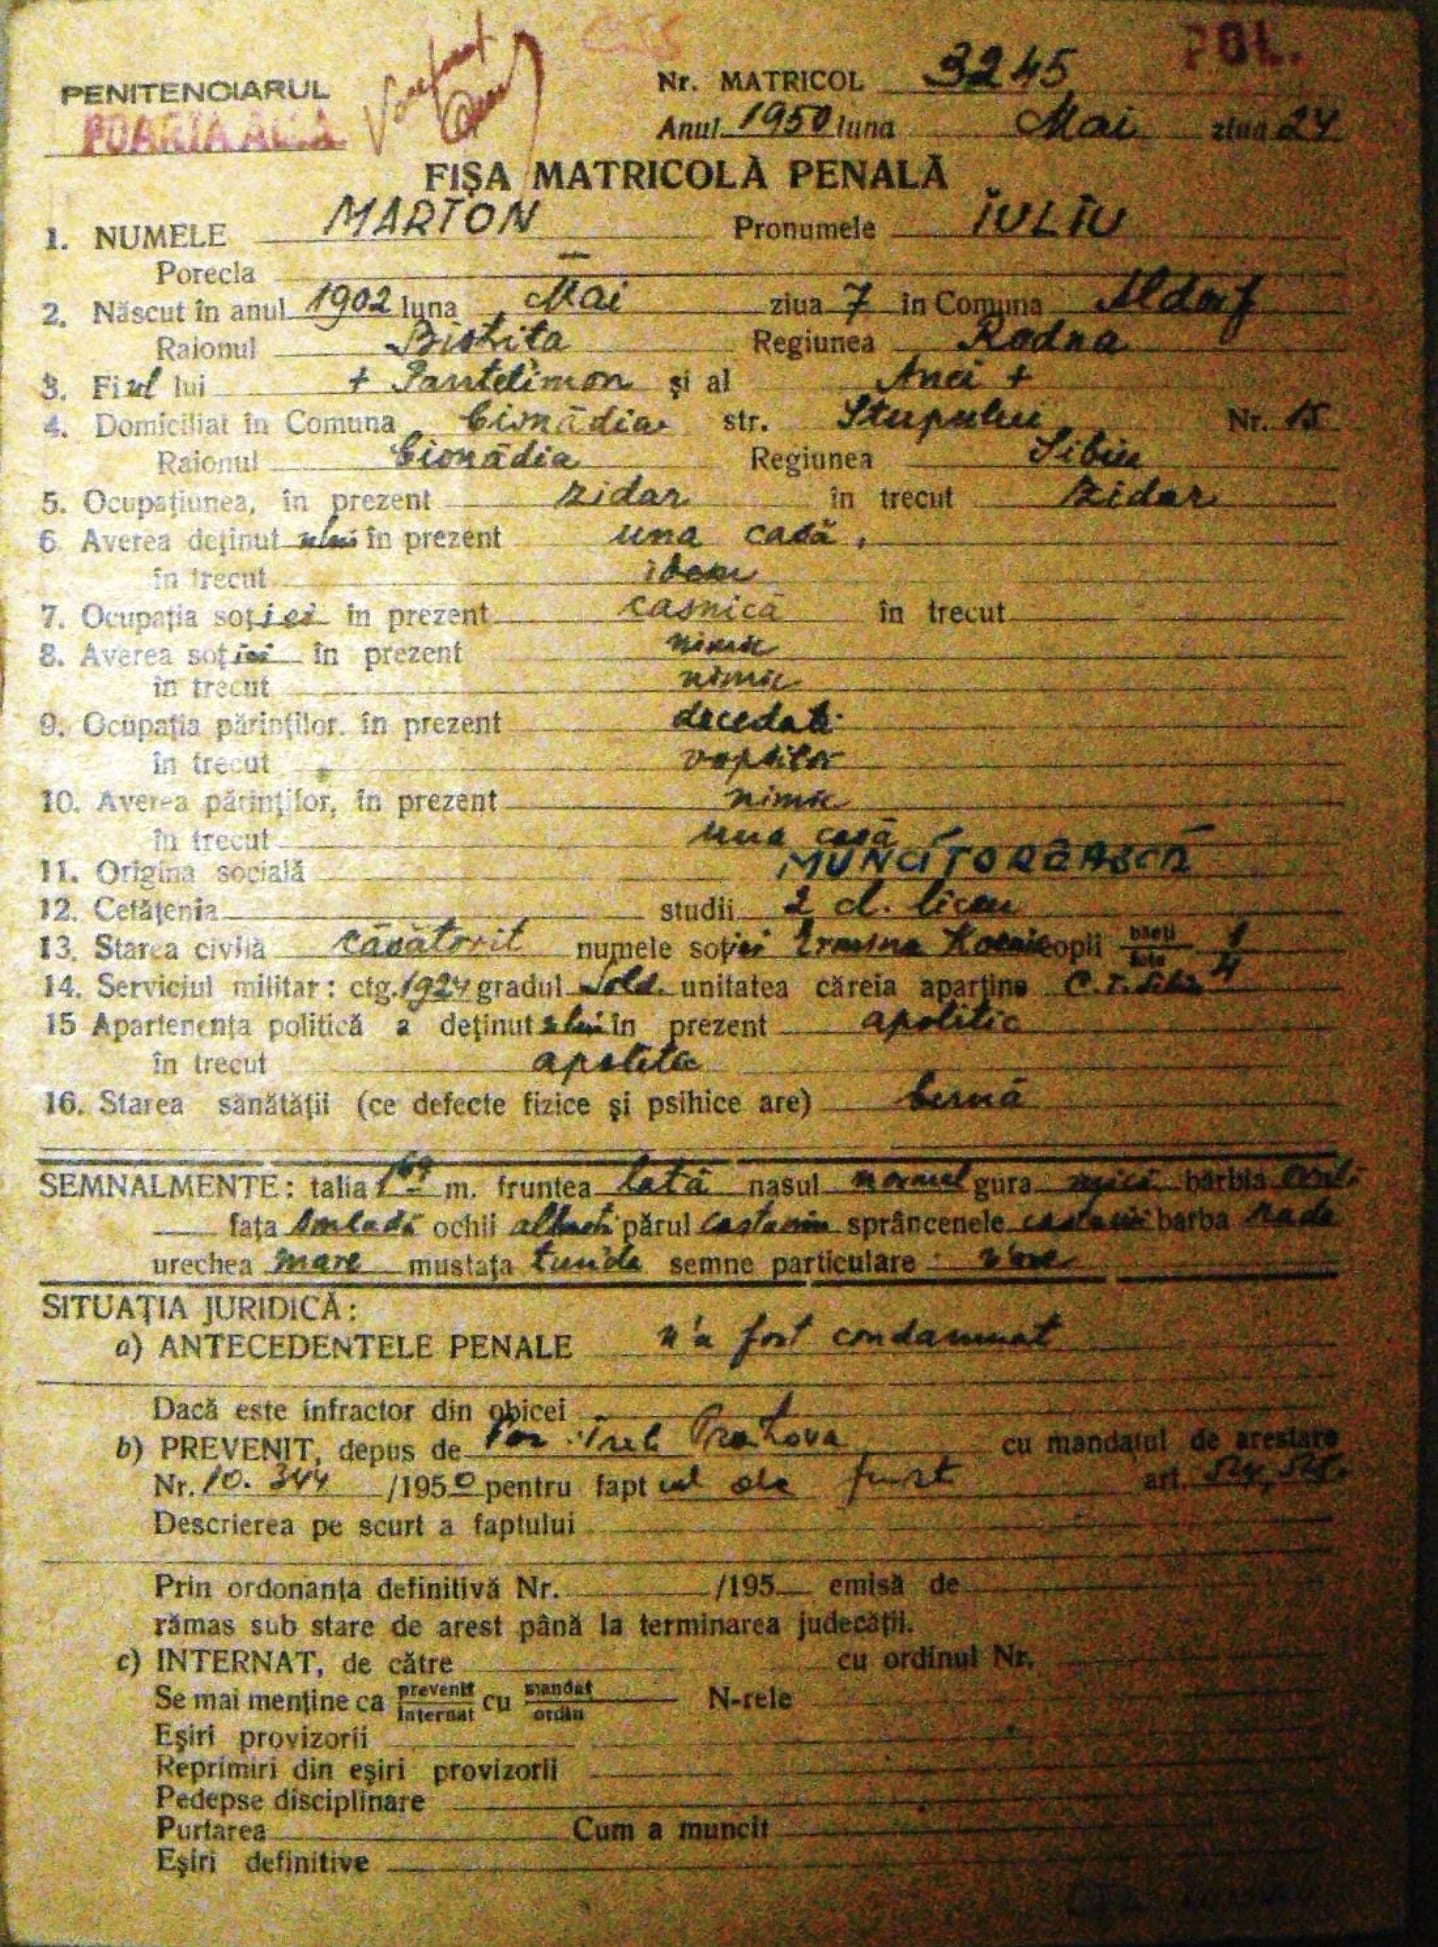 POL.
PENITENCIARUL Nr. MATRICOL 3245
POARTA ALBĂ Anul 1950 luna Mai ziua 24
FIȘA MATRICOLĂ PENALĂ
1. NUMELE MARTON Pronumele IULIU
Porecla —
2. Născut în anul 1902 luna Mai ziua 7 în Comuna Aldorf
Raionul Bistrita Regiunea Rodna
3. Fiul lui + Pantelimon și al Anei +
4. Domiciliat în Comuna Cisnădia str. Stupului Nr. 15
Raionul Cisnădia Regiunea Sibiu
5. Ocupațiunea, în prezent zidar în trecut zidar
6 Averea deținutului în prezent una casă,
în trecut idem
7. Ocupația soției în prezent casnică în trecut
8. Averea soției în prezent nimic
în trecut nimic
9. Ocupația părinților, în prezent decedați
în trecut vopsitor
10. Averea părinților, în prezent nimic
în trecut una casă
11. Origina socială MUNCITOREASCĂ
12. Cetățenia studii 2 cl. liceu
13. Starea civilă căsătorit numele soției Ermina copii băeți 1
fete 4
14. Serviciul militar: ctg. 1924 gradul Sold. unitatea căreia aparține C.T. Sibiu
15 Apartenența politică a deținutului în prezent apolitic
în trecut apolitic
16. Starea sănătății (ce defecte fizice și psihice are) bună
SEMNALMENTE: talia 1 69 m. fruntea lată nasul normal gura mică bărbia
fața ochii albaștri părul castaniu sprâncenele castanii barba rade
urechea mare mustața tunde semne particulare: n'are
SITUAȚIA JURIDICĂ:
a) ANTECEDENTELE PENALE n'a fost condamnat
Dacă este infractor din obicei
b) PREVENIT, depus de Par. Trib Prahova cu mandatul de arestare
Nr. 10.344 /1950 pentru faptul de furt art. 524, 525.
Descrierea pe scurt a faptului
Prin ordonanța definitivă Nr. /195 emisă de
rămas sub stare de arest până la terminarea judecății.
c) INTERNAT, de către cu ordinul Nr.
Se mai menține ca prevenit cu mandat N-rele
internat ordin
Eșiri provizorii
Reprimiri din eșiri provizorii
Pedepse disciplinare
Purtarea Cum a muncit
Eșiri definitive